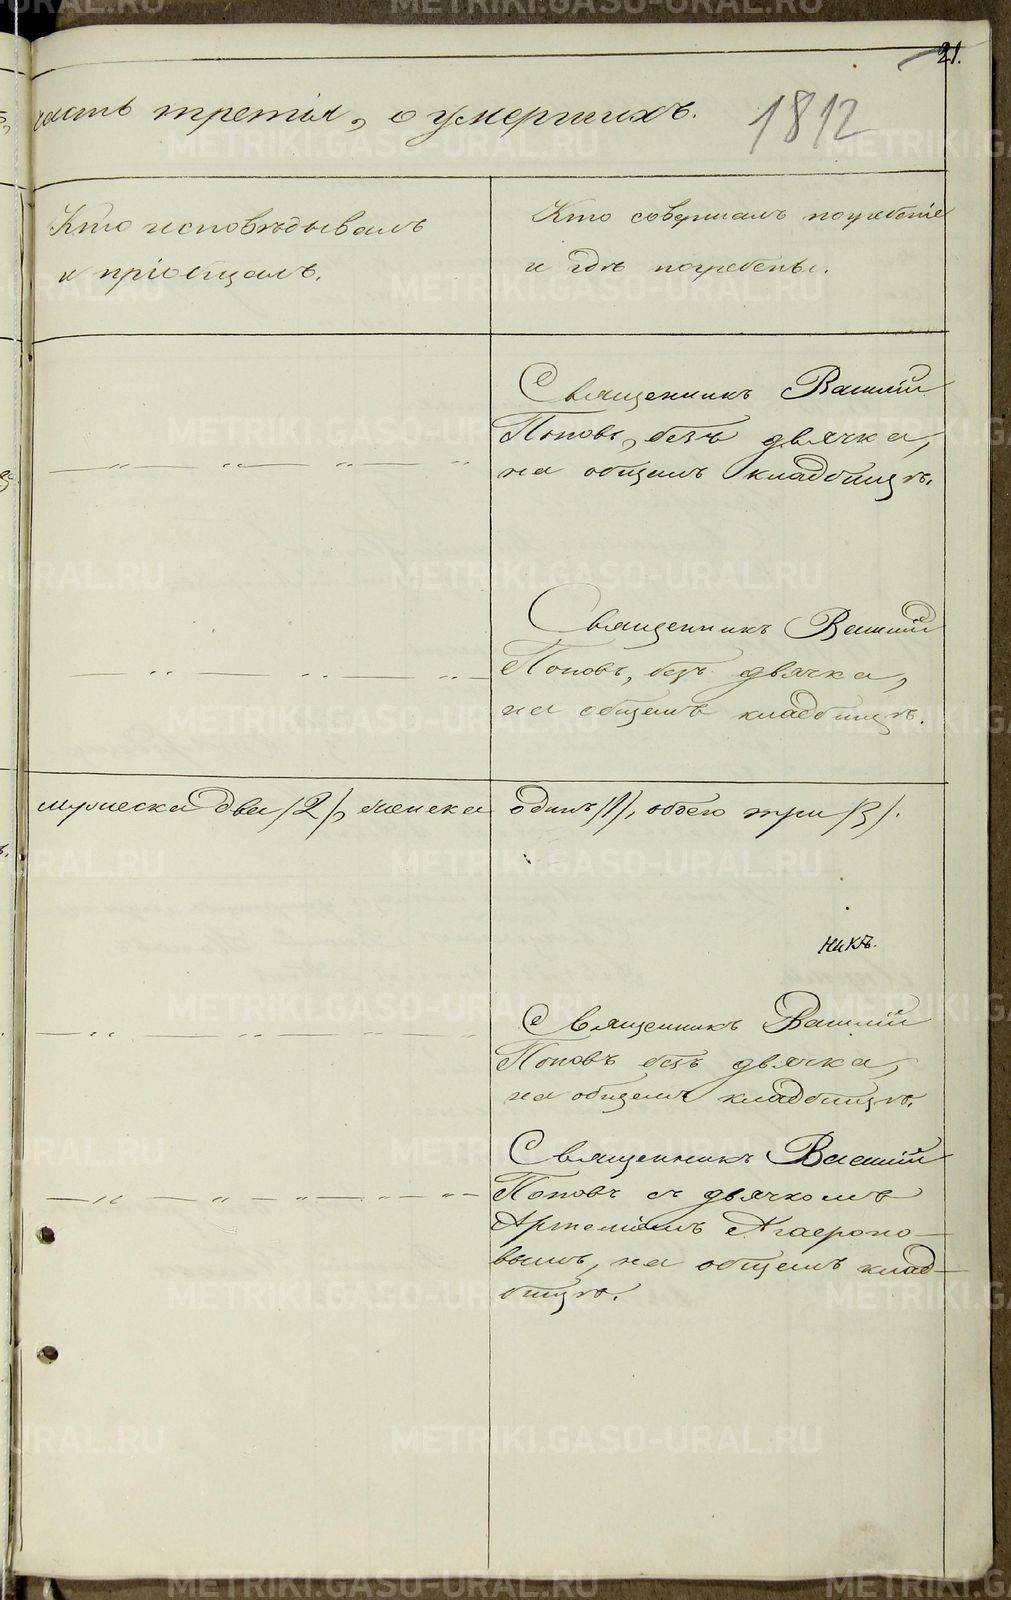 21.
часть третія, о умершихъ.
1812
Кто исповѣдывалъ
и пріобщалъ.
Кто совершалъ погребеніе
и гдѣ погребены.
Священникъ Василій
Поповъ, безъ дьячка,
на общемъ кладбищѣ.
Священникъ Василій
Поповъ, безъ дьячка,
на общемъ кладбищѣ.
мужеска два /2/, женска одинъ /1/, обоего три /3/.
никъ.
Священникъ Василій
Поповъ безъ дьячка,
на общемъ кладбищѣ.
Священникъ Василій
Поповъ съ дьячкомъ
Артеміемъ Агаѳоно-
вымъ, на общемъ клад-
бищѣ.
METRIKI.GASO-URAL.RU